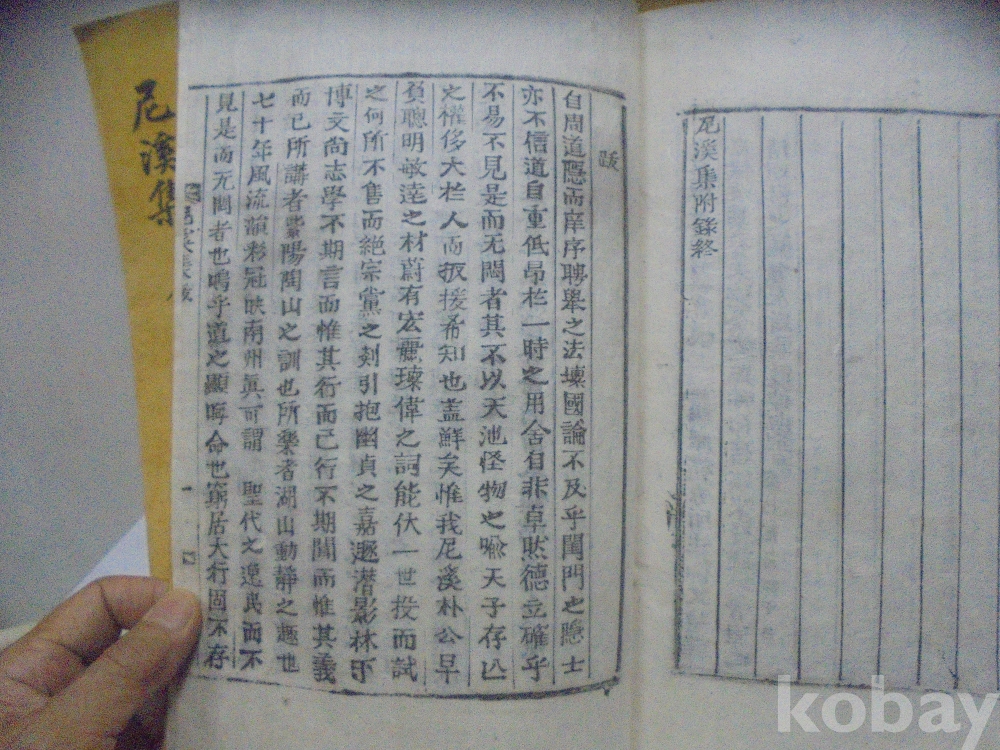 尼溪集附錄終
跋
自周道隱而庠序聘擧之法壞國論不及乎閨門之隱士
亦不信道自重低昂於一時之用舍自非卓然德立確乎
不易不見是而无悶者其不以天池怪物之喩天子存亾
之權侈大於人而扳援希知也盖鮮矣惟我尼溪朴公早
負聰明敏達之材蔚有宏麗瑧偉之詞能伏一世投而試
之何所不售而絶宗黨之剡引抱幽貞之嘉遯潛影林下
博文尚志學不期言而惟其行而已行不期聞而惟其義
而已所講者紫陽陶山之訓也所樂者湖山動靜之趣也
七十年風流韻彩冠映南州眞可謂 聖代之逸民而不
見是而无悶者也嗚乎道之顯晦命也窮居大行固不存
尼溪集
kobay